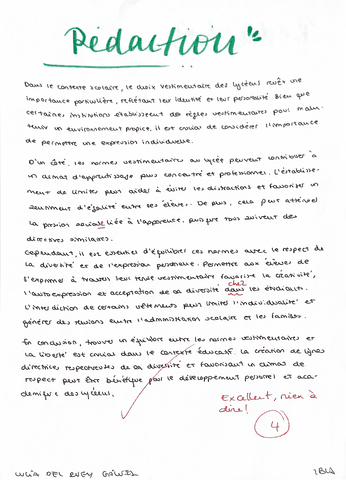 Rédaction
Dans le contexte scolaire, le choix vestimentaire des lycéens revêt une
importance particulière, reflétant leur identité et leur personalité. Bien que
certaines institutions établissent des règles vestimentaires pour main-
tenir un environnement propice, il est crucial de considérer l'importance
de permettre une expression individuelle.
D'un côté, les normes vestimentaires au lycée peuvent contribuer à
un climat d'apprentissage plus concentré et professionnel. L'établisse-
ment de limites peut aider à éviter les distractions et favoriser un
sentiment d'égalité entre les élèves. De plus, cela peut atténuer
la pression sociale liée à l'apparence, puisque tous suivent des
directives similaires.
Cependant, il est essentiel d'équilibrer ces normes avec le respect de
la diversité et de l'expression personelle. Permettre aux élèves de
s'exprimer à travers leur tenue vestimentaire favorise la créativité,
chez
l'autoexpression et acceptation de sa diversité dans les étudiants.
L'interdiction de certains vêtements peut limiter l'individualité et
générer des tensions entre l'administration scolaire et les familles.
En conclusion, trouver un équilibre entre les normes vestimentaires et
la liberté est crucial dans le contexte éducatif. La création de lignes
directrices respectueuses de la diversité et favorisant un climat de
respect peut être bénéfique pour le développement personnel et aca-
démique des lycéens.
Excellent, rien à
dire!
4
LUCÍA DEL REY
1BLA